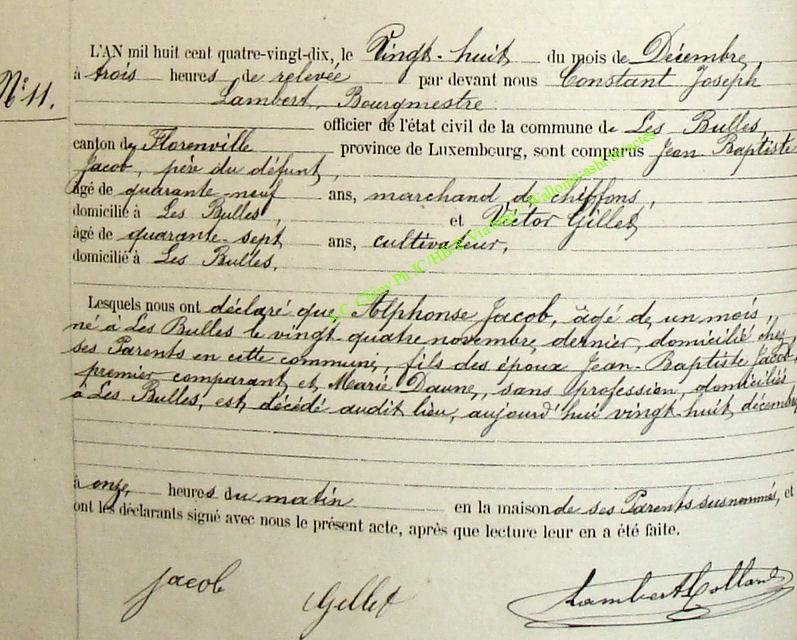 L'AN mil huit cent quatre-vingt-dix, le Vingt-huit du mois de Décembre,
à trois heures de relevée par devant nous Constant Joseph
N° 11.
Lambert, Bourgmestre
officier de l'état civil de la commune de Les Bulles,
canton de Florenville province de Luxembourg, sont comparus Jean Baptiste
Jacob, père du défunt,
âgé de quarante neuf ans, marchand de chiffons,
domicilié à Les Bulles, et Victor Gillet
âgé de quarante-sept ans, cultivateur,
domicilié à Les Bulles,
Lesquels nous ont déclaré que Alphonse Jacob, âgé de un mois
né à Les Bulles le vingt quatre novembre dernier, domicilié chez
ses Parents en cette commune, fils des époux Jean-Baptiste Jacob,
premier comparant et Marie Daune, sans profession, domiciliés
à Les Bulles, est décédé audit lieu, aujourd'hui vingt-huit décembre
à onze heures du matin en la maison de ses Parents susnommés, et
ont les déclarants signé avec nous le présent acte, après que lecture leur en a été faite.
Jacob Gillet Lambert